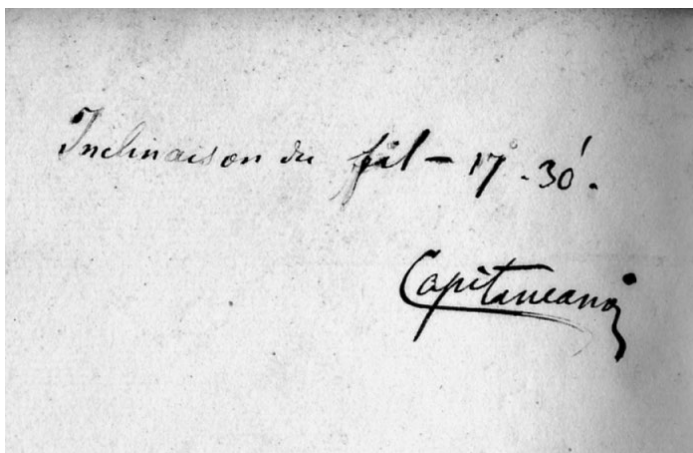 Inclinaison du fil – 17° - 30'.
Capitaneanu